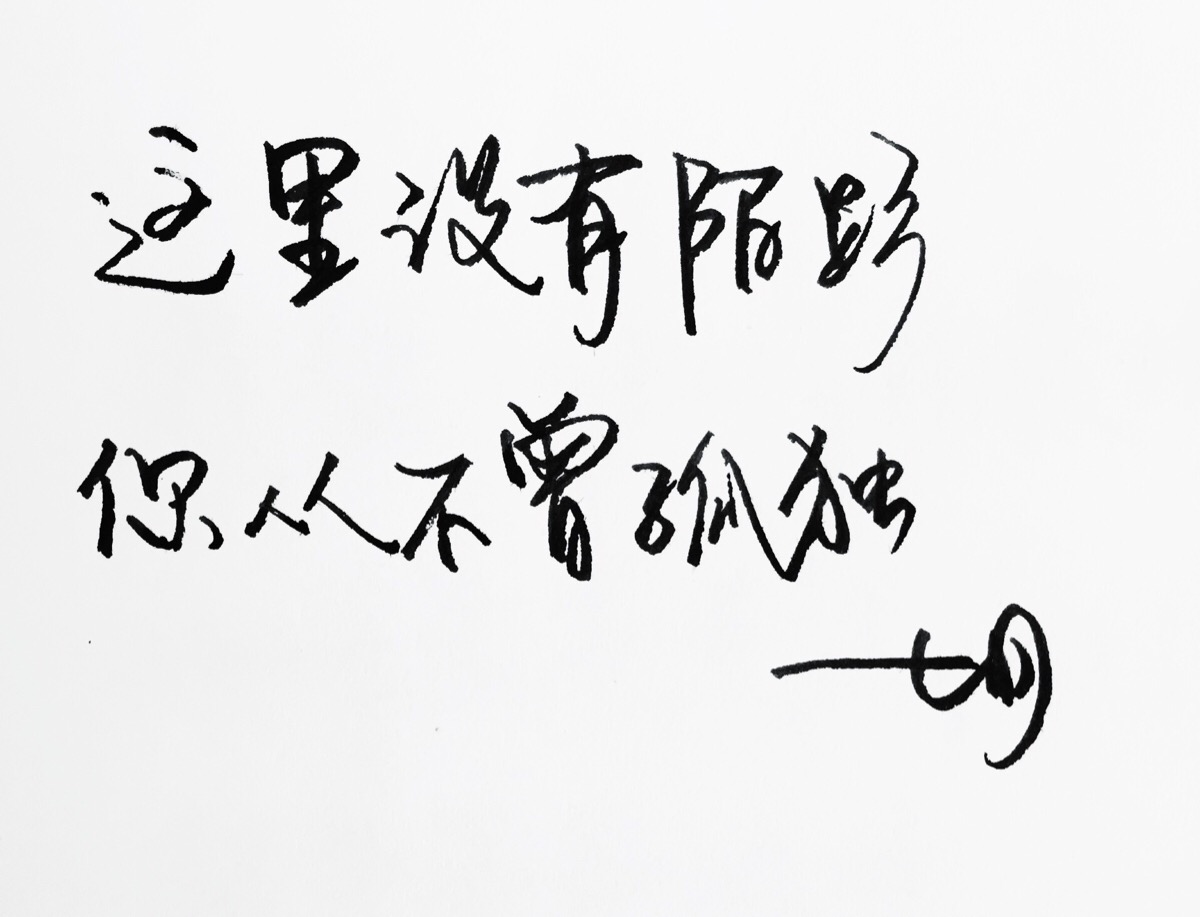 这里没有
你从不曾孤独
七月